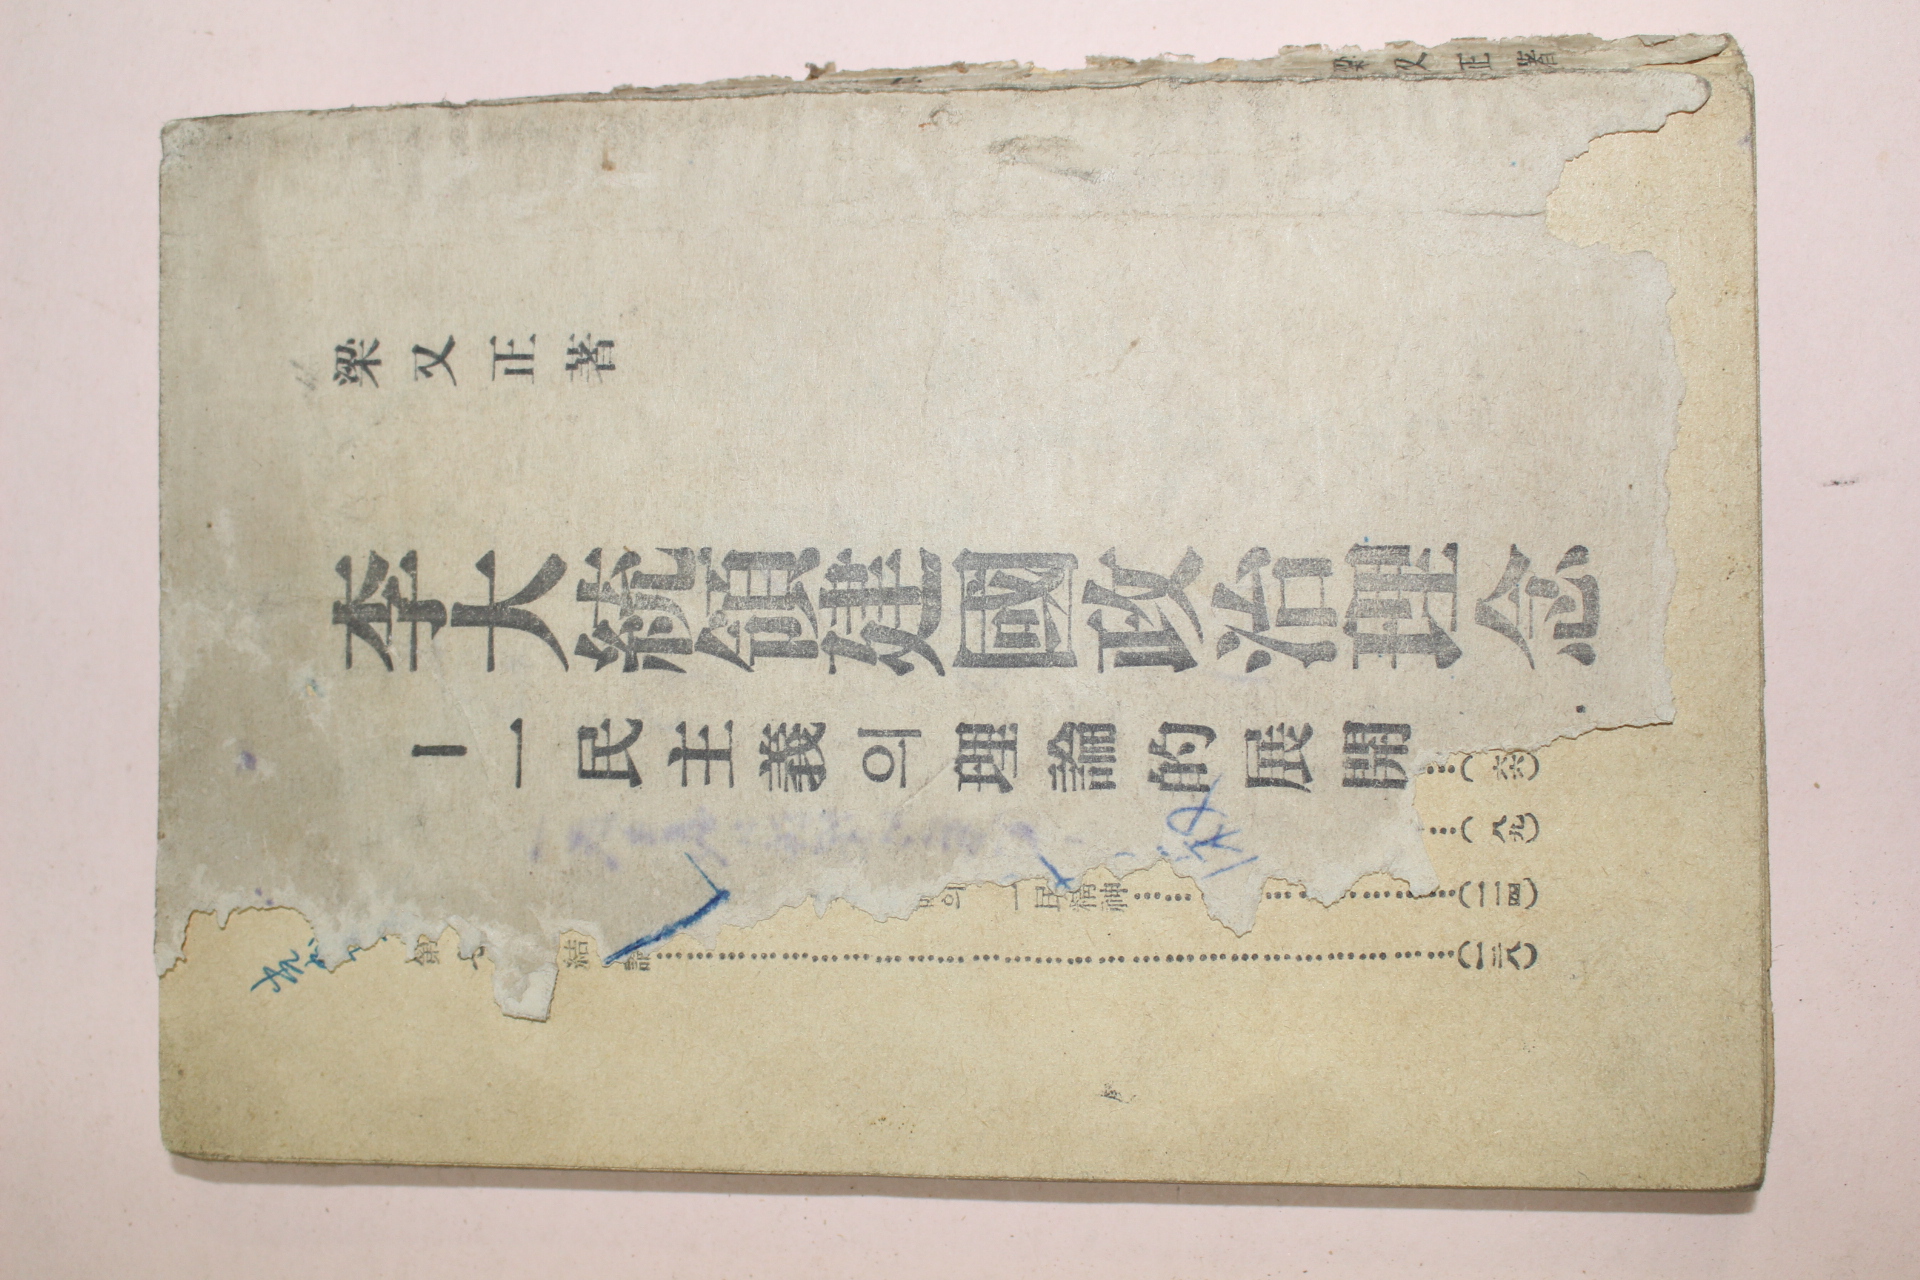 梁又正著
李大統領建國政治理念
—一民主義의理論的展開
…(六六)
…(八九)
의 一民精神……(一一四)
第七 結論……(一二六)
梁又正著